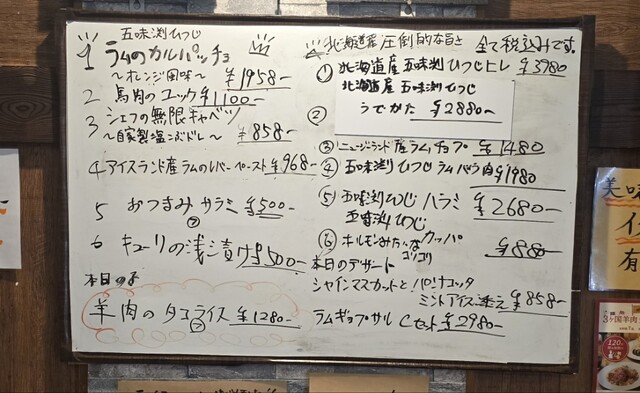 五味渕ひつじ
1 ラムのカルパッチョ
～オレンジ風味～ ¥1958-
2 馬肉のユッケ ¥1100-
3 シェフの無限キャベツ
～自家製塩こぶドレ～ ¥858-
4 アイスランド産ラムのレバーペースト ¥968-
5 おつまみサラミ ¥500-
6 キューリの浅漬け ¥500-
本日の
羊肉のタコライス ¥1280-
北海道産 圧倒的な旨さ 全て税込みです。
① 北海道産 五味渕ひつじヒレ ¥3780
② 北海道産 五味渕ひつじ
うでかた ¥2880-
③ ニュージーランド産ラムチョップ ¥1480
④ 五味渕ひつじラムバラ肉 ¥1980
⑤ 五味渕ひつじハラミ ¥2680-
五味渕ひつじ
⑥ ホルモンみたいなカッパ ¥880-
コリコリ
本日のデザート
シャインマスカットとパンナコッタ
ミントアイス添え ¥858-
ラムギョプサル Cセット ¥2980-
美味
有
3ヶ国羊肉
120